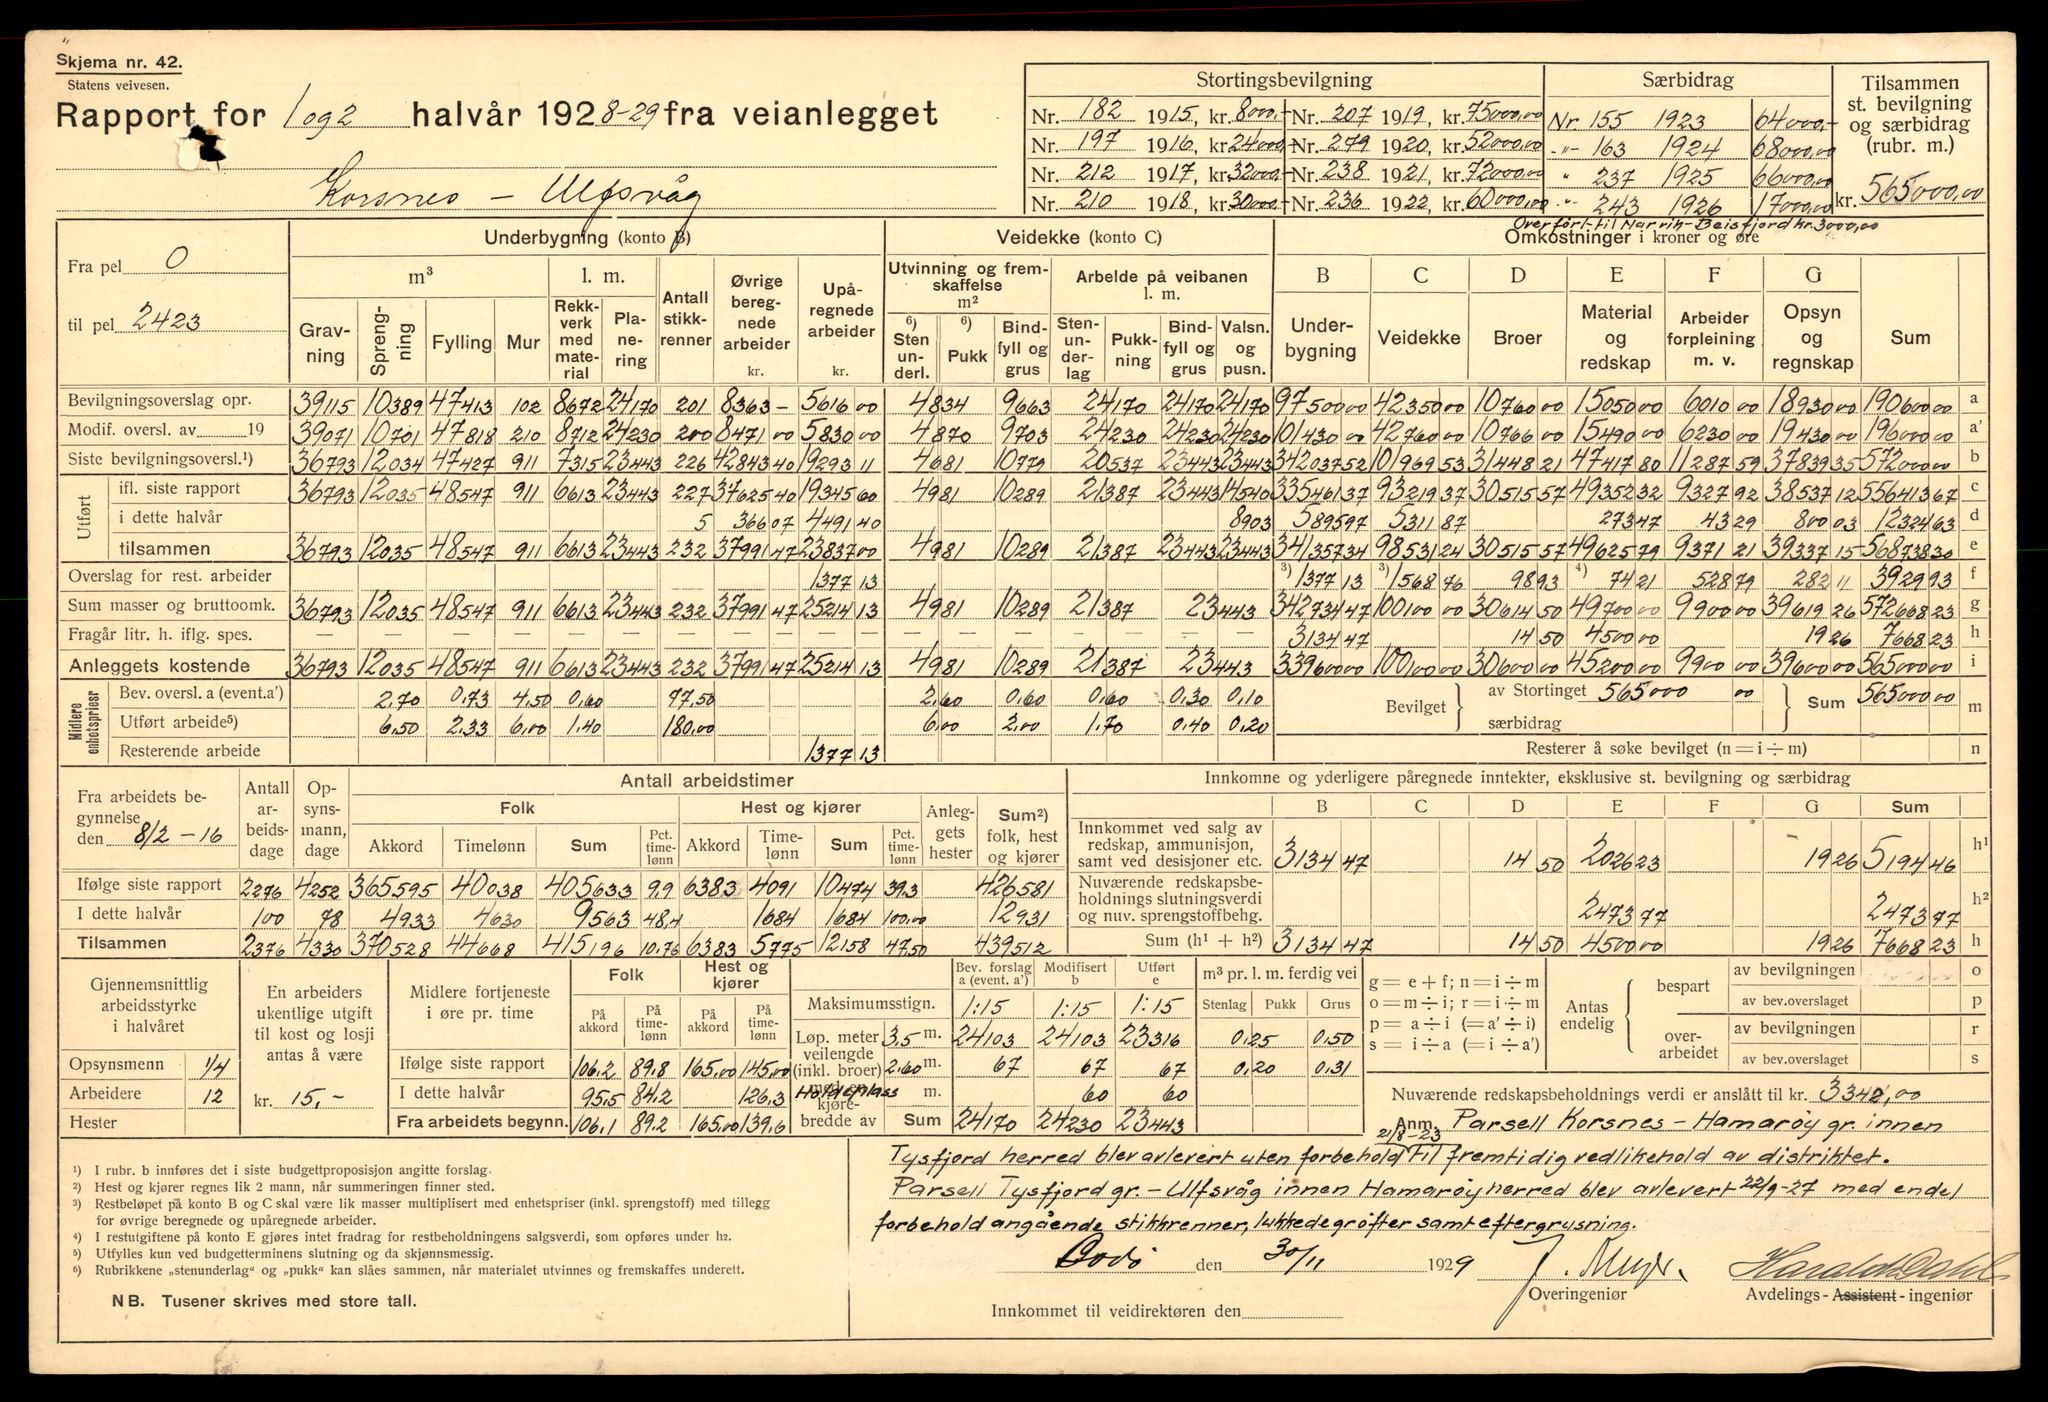 Skjema nr. 42.
Statens veivesen.
Rapport for 1 og 2 halvår 1928-29 fra veianlegget
Korsnes - Ulfsvåg
Stortingsbevilgning Særbidrag Tilsammen st. bevilgning og særbidrag (rubr. m.)
Nr. 182 1915, kr. 8000,- Nr. 207 1919, kr. 75000,00 Nr 155 1923 64000,-
Nr. 197 1916, kr. 24000,- Nr. 279 1920, kr. 52000,00 -"- 163 1924 68000,00
Nr. 212 1917, kr. 32000,- Nr. 238 1921, kr. 72000,00 " 237 1925 66000,00
Nr. 210 1918, kr. 30000,- Nr. 236 1922, kr. 60000,00 -"- 243 1926 17000,00 kr. 565000,00
Overført til Narvik-Beisfjord kr. 3000,00
Fra pel 0
til pel 2423
Underbygning (konto B) Veidekke (konto C) Omkostninger i kroner og øre
m³ l. m. Antall stikkrenner Øvrige beregnede arbeider kr. Upåregnede arbeider kr.
Utvinning og fremskaffelse m² Arbeide på veibanen l. m.
B C D E F G
Gravning Sprengning Fylling Mur Rekkverk med material Planering
⁶) Sten underl. ⁶) Pukk Bindfyll og grus Stenunderlag Pukkning Bindfyll og grus Valsn. og pusn.
Underbygning Veidekke Broer Material og redskap Arbeider forpleining m. v. Opsyn og regnskap Sum
Bevilgningsoverslag opr. 39115 10389 47413 102 8672 24170 201 8363 - 5616 00 4834 9663 24170 24170 24170 97500 00 42350 00 10760 00 15050 00 6010 00 18930 00 190600 00 a
Modif. oversl. av 19 39071 10701 47818 210 8712 24230 200 8471 00 5830 00 4870 9703 24230 24230 24230 101430 00 42760 00 10766 00 15490 00 6230 00 19430 00 196000 00 a'
Siste bevilgningsoversl.¹) 36793 12034 47427 911 7315 23443 226 42843 40 19293 11 4681 10779 20537 23443 23443 342037 52 101969 53 31448 21 47417 80 11287 59 37839 35 572000 00 b
Utført
ifl. siste rapport 36793 12035 48547 911 6613 23443 227 37625 40 19345 60 4981 10289 21387 23443 14540 335461 37 93219 37 30515 57 49352 32 9327 92 38537 12 556413 67 c
i dette halvår 5 366 07 4491 40 8903 5895 97 5311 87 273 47 43 29 800 03 12324 63 d
tilsammen 36793 12035 48547 911 6613 23443 232 37991 47 23837 00 4981 10289 21387 23443 23443 341357 34 98531 24 30515 57 49625 79 9371 21 39337 15 568738 30 e
Overslag for rest. arbeider 1377 13 ³) 1377 13 ³) 1568 76 98 93 ⁴) 74 21 528 79 282 11 3929 93 f
Sum masser og bruttoomk. 36793 12035 48547 911 6613 23443 232 37991 47 25214 13 4981 10289 21387 23443 342734 47 100100 00 30614 50 49700 00 9900 00 39619 26 572668 23 g
Fragår litr. h. iflg. spes. — — — — — — — — — — — — — 3134 47 14 50 4500 00 19 26 7668 23 h
Anleggets kostende 36793 12035 48547 911 6613 23443 232 37991 47 25214 13 4981 10289 21387 23443 339600 00 100100 00 30600 00 45200 00 9900 00 39600 00 565000 00 i
Midlere enhetspriser
Bev. oversl. a (event. a') 2.70 0,73 4,50 0,60 77,50 2,60 0,60 0,60 0,30 0,10
Utført arbeide⁵) 6,50 2,33 6,00 1,40 180,00 6,00 2,00 1,70 0,40 0,20
Resterende arbeide 1377 13
Bevilget av Stortinget 565000 00 særbidrag Sum 565000 00 m
Resterer å søke bevilget (n = i ÷ m) n
Fra arbeidets begynnelse den 8/2 - 16
Antall arbeidsdage Opsynsmann, dage Antall arbeidstimer
Folk Hest og kjører Anleggets hester Sum²) folk, hest og kjører
Akkord Timelønn Sum Pct. timelønn Akkord Timelønn Sum Pct. timelønn
Ifølge siste rapport 2276 4252 365595 40038 405633 9,9 6383 4091 10474 39.3 426581
I dette halvår 100 78 4933 4630 9563 48,4 1684 1684 100,00 12931
Tilsammen 2376 4330 370528 44668 415196 10.76 6383 5775 12158 47.50 439512
Innkomne og yderligere påregnede inntekter, eksklusive st. bevilgning og særbidrag
B C D E F G Sum
Innkommet ved salg av redskap, ammunisjon, samt ved desisjoner etc. 3134 47 14 50 2026 23 19 26 5194 46 h¹
Nuværende redskapsbeholdnings slutningsverdi og nuv. sprengstoffbehg. 2473 77 2473 77 h²
Sum (h¹ + h²) 3134 47 14 50 4500.00 19 26 7668 23 h
Gjennemsnittlig arbeidsstyrke i halvåret
Opsynsmenn 1/4
Arbeidere 12
Hester
En arbeiders ukentlige utgift til kost og losji antas å være
kr. 15,-
Midlere fortjeneste i øre pr. time
Folk Hest og kjører
På akkord På timelønn På akkord På timelønn
Ifølge siste rapport 106,2 89.8 165,00 145,00
I dette halvår 95,5 84.2 126,3
Fra arbeidets begynn. 106,1 89.2 165,00 139,6
Bev. forslag a (event. a') Modifisert b Utført e
Maksimumsstign. 1:15 1:15 1:15
Løp. meter veilengde (inkl. broer) med en kjørebredde av
3,5 m. 24103 24103 23316
2,60 m. 67 67 67
Holdeplass m. 60 60
Sum 24170 24230 23443
m³ pr. l. m. ferdig vei
Stenlag Pukk Grus
0,25 0,50
0,20 0,31
g = e + f; n = i ÷ m
o = m ÷ i; r = i ÷ m
p = a ÷ i (= a' ÷ i)
s = i ÷ a (= i ÷ a')
Antas endelig
bespart av bevilgningen o
av bev.overslaget p
overarbeidet av bevilgningen r
av bev.overslaget s
Nuværende redskapsbeholdnings verdi er anslått til kr. 3342,00
Anm. Parsell Korsnes - Hamarøy gr. innen
Tysfjord herred blev avlevert 21/8-23 uten forbehold til fremtidig vedlikehold av distriktet.
Parsell Tysfjord gr. - Ulfsvåg innen Hamarøy herred blev avlevert 22/9-27 med endel
forbehold angående stikkrenner, lukkede grøfter samt eftergrusning.
¹) I rubr. b innføres det i siste budgettproposisjon angitte forslag.
²) Hest og kjører regnes lik 2 mann, når summeringen finner sted.
³) Restbeløpet på konto B og C skal være lik masser multiplisert med enhetspriser (inkl. sprengstoff) med tillegg
for øvrige beregnede og upåregnede arbeider.
⁴) I restutgiftene på konto E gjøres intet fradrag for restbeholdningens salgsverdi, som opføres under h2.
⁵) Utfylles kun ved budgetterminens slutning og da skjønnsmessig.
⁶) Rubrikkene „stenunderlag" og „pukk" kan slåes sammen, når materialet utvinnes og fremskaffes underett.
NB. Tusener skrives med store tall.
Bodø den 30/11 1929
J. Meyer. Overingeniør
Harald Dahl Avdelings-Assistent-ingeniør
Innkommet til veidirektøren den